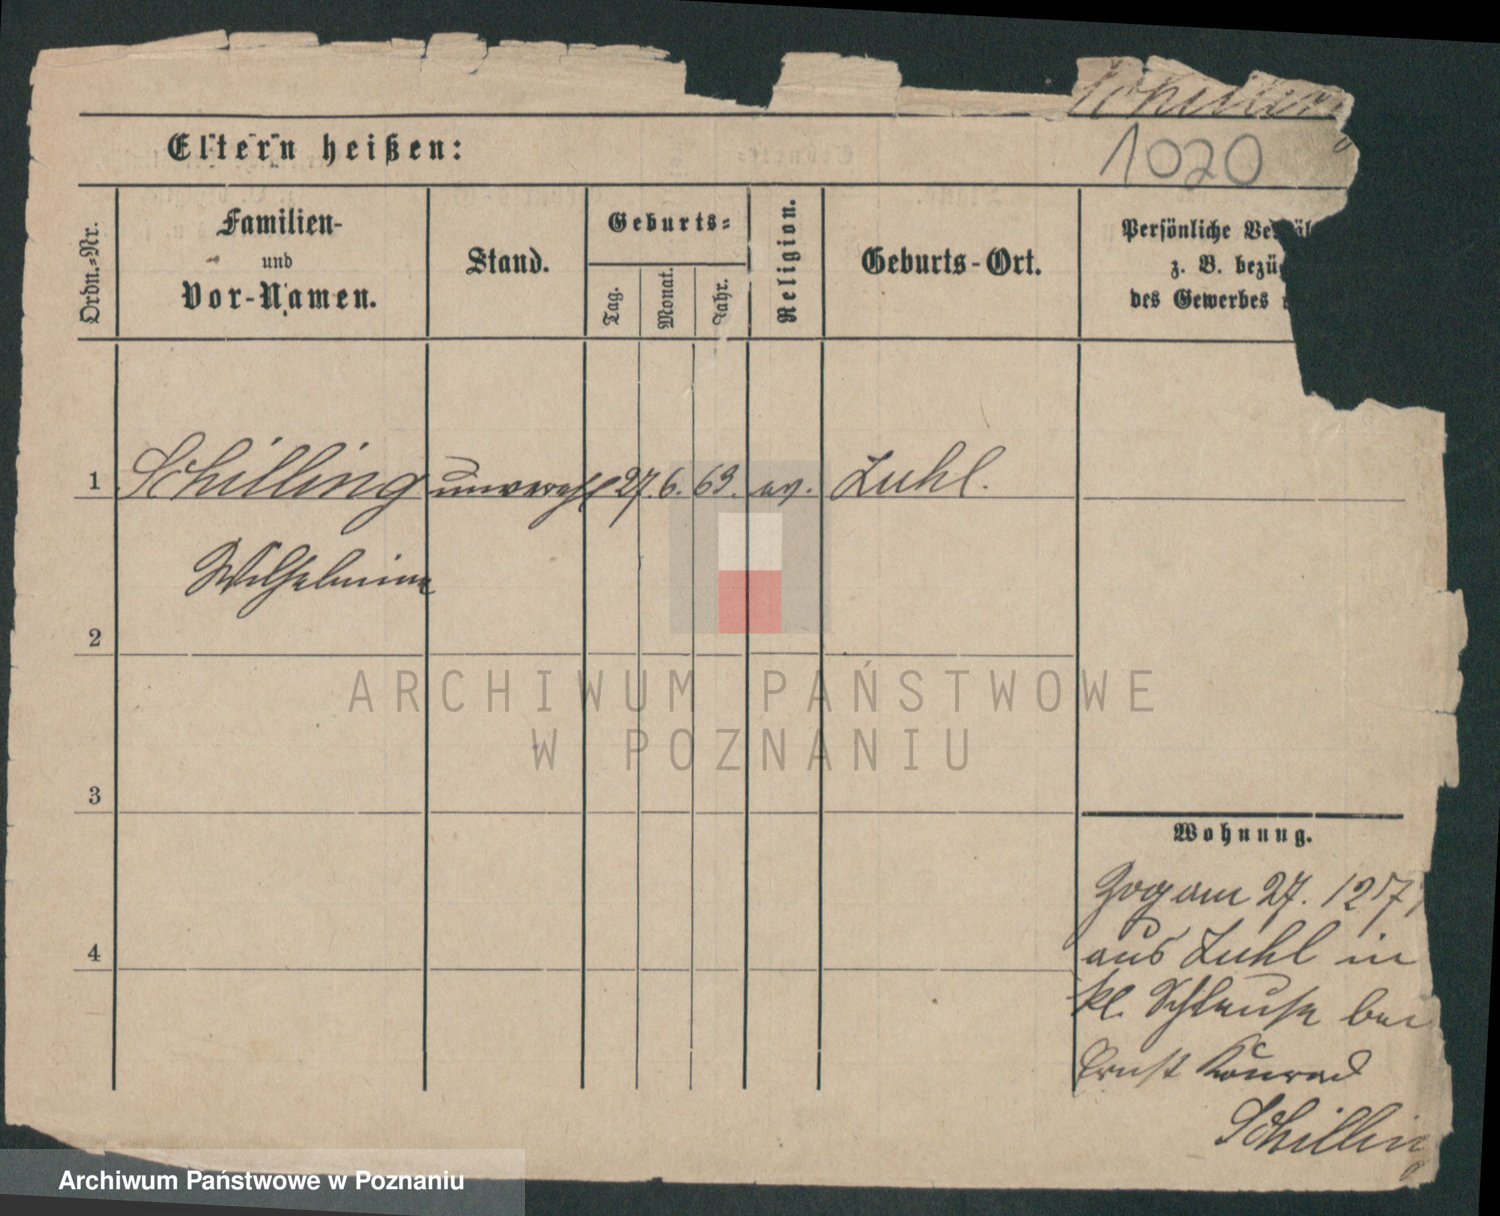 Schilling
1020
Eltern heißen:
Ordn.-Nr.
Familien-
und
Vor-Namen.
Stand.
Geburts-
Tag.
Monat.
Jahr.
Religion.
Geburts-Ort.
Persönliche
z. B.
des Gewerbes
1 Schilling 27. 6. 69. ev. Zuhl.
Wilhelmine
2
3
4
Wohnung.
Zog am 27. 12
aus Zuhl in
kl. bei
Ernst Konrad
Schillin
ARCHIWUM PAŃSTWOWE
W POZNANIU
Archiwum Państwowe w Poznaniu